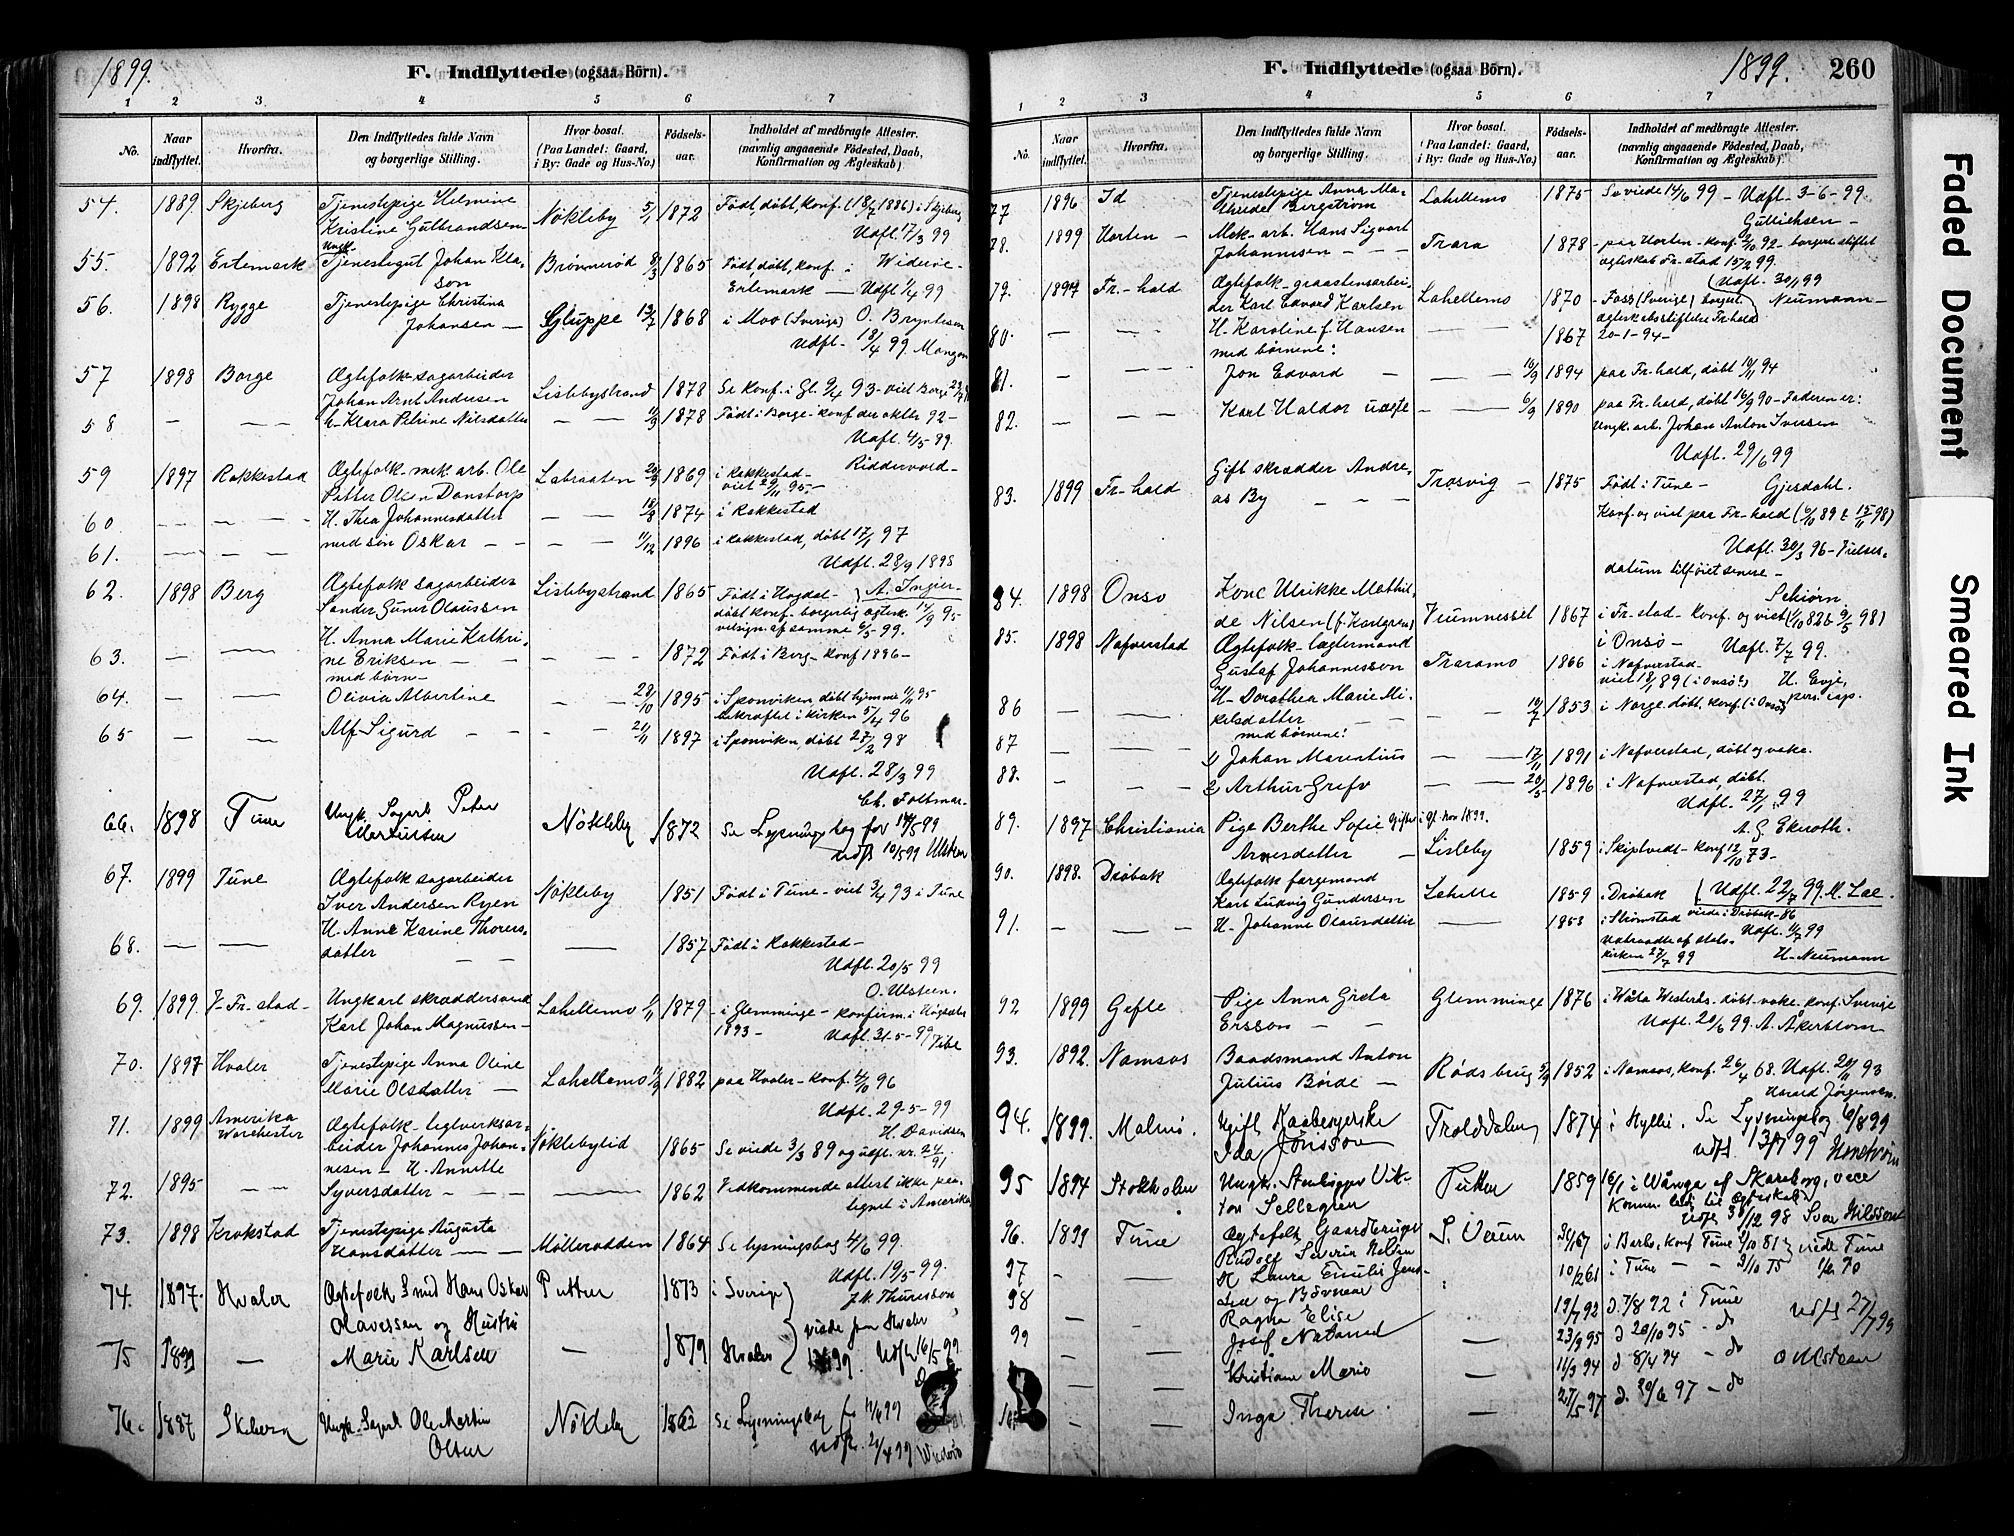 1899.
F. Indflyttede (ogsaa Børn).
1 2 3 4 5 6 7
No.
Naar indflyttet.
Hvorfra.
Den Indflyttedes fulde Navn
og borgerlige Stilling.
Hvor bosat.
(Paa Landet: Gaard,
i By: Gade og Hus-No.)
Fødsels-
aar.
Indholdet af medbragte Attester.
(navnlig angaaende Fødested, Daab,
Konfirmation og Ægteskab).
54. 1889 Skjeberg Tjenestepige Helmine
Kristine Gulbrandsen Nökleby 5/1 1872 Född, döbt, konf. (18/7 1886) i Skjeberg
Udfl. 17/3 99
55. 1892 Ertemark Ungk. Tjenestegut Johan Kla-
son Brönnerød 8/3 1865 Född, döbt, konf. i
Ertemark — Udfl. 1/4 99
56. 1898 Rygge Tjenestepige Christina
Johansen — Gluppe 13/7 1868 i Moo (Sverige) O. Bryntesen
Udfl. 18/4 99.
57 1898 Borge Ægtefolk sagarbeider
Johan Arnt Andersen Lislebystrand 1878 Se konf. i Gl. 2/4 93 - viet Borge
58 — — — H. Klara Petrine Nilsdatter — — 11/9 1878 Född i Borge - konf. der oktbr. 92 -
Udfl. 4/5 - 99.
59 1897 Rakkestad Ægtefolk - mek. arb. Ole Labraaten 20/9 1869 i Rakkestad -
Petter Olsen Danstorp viet 29/11 95. -
60. — — — H. Thea Johannesdatter — — 18/8 1874 i Rakkestad
61. — — — med søn Oskar — — 11/12 1896 i Rakkestad, döbt 17/1 97
Udfl. 28/9 1898
62. 1898 Berg Ægtefolk sagarbeider Lislebystrand 1865 Född i Hogdal - A. Ingier -
Sander Guner Olaussen döbt konf. borgerlig ægtesk. 14/9 95 -
velsign. af samme 6/5 99.
63. — — H. Anna Marie Kathri-
ne Eriksen — — 1872 Född i Berg - konf 1886 -
med børn -
64. — — Olivia Albertine — — 29/10 1895 i Sponviken döbt hjemme 11/11 95
bekræftet i kirken 5/4 96
65 — — Alf Sigurd — — 21/11 1897 i Sponviken, döbt 27/2 98
Udfl. 28/3 99
66. 1898 Tune Ungk. Sagarb. Peter
Martinsen Nökleby 1872 Se Lysningsbog for 14/5 99
Udfl 10/5 99 Ulsteen
67. 1899 Tune Ægtefolk sagarbeider
Iver Andersen Ryen Nökleby 1851 Född i Tune - viet 3/4 93 i Tune
68. — — H. Anne Karine Thorers-
datter — — 1857 Född i Rakkestad -
Udfl. 20/5 99
O. Ulsteen.
69. 1899. V-Fr.stad - Ungkarl skræddersvend Lahellemo 1/11 1879 - i Glemminge - konfirm. i
Karl Johan Magnussen - 1893 - Udfl. 31-5-99
70. 1897 Hvaler Tjenestepige Anna Oline
Marie Olsdatter — Lahellemo 1882 paa Hvaler - konf. 4/10 96
Udfl. 29-5-99
H. Davidsen
71. 1899 Amerika
Worchester Ægtefolk - teglverksar-
beider Johannes Johan-
nesen - H. Annette Nøklebylid 1865 Se viede 3/3 89 og udfl. nr. 24/91.
72. 1895 — — Syversdatter — — 1862 Vedkommende attest ikke paa-
tegnet i Amerika
73. 1898 Krokstad Tjenestepige Augusta
Hansdatter — — Møllerodden 1864 Se lysningsbog 4/6 99.
Udfl. 19/5 - 99.
J. M. Thuresson
74. 1897. Hvaler Ægtefolk Smed Hans Oskar Putten 1873 i Sverige
Olavessen og Hustru viede paa Hvaler
75 1899 — Marie Karlsen — 1879 Hvaler Udfl. 16/5 99
76. 1887 Skeberg Ungk. Sagarb. Ole Martin
Olsen Nökleby 1862 Se Lysningsbog for 11/6 99
Udfl. 21/4 99
F. Indflyttede (ogsaa Børn).
1899. 260
1 2 3 4 5 6 7
No.
Naar indflyttet.
Hvorfra.
Den Indflyttedes fulde Navn
og borgerlige Stilling.
Hvor bosat.
(Paa Landet: Gaard,
i By: Gade og Hus-No.)
Fødsels-
aar.
Indholdet af medbragte Attester.
(navnlig angaaende Fødested, Daab,
Konfirmation og Ægteskab).
77 1896 Id Tjenestepige Anna Ma-
thilde Bergström Lahellemo 1875 Se viede 14/6 99 - Udfl. 3-6-99.
Gullichsen -
78. 1899 Horten - Mek. arb. Hans Sigvart
Johannesen — — Trara 1878 - paa Horten - konf. 2/10 92 - borgerl. stiftet
ægteskab Fr.stad 15/2 99.
Udfl. 30/1 99
79. 1899 Fr.-hald Ægtefolk - graastensarbei-
der Karl Edvard Karlsen Lahellemo 1870 - Foss (Sverige) borgerl. Neumann -
ægteskabsstiftelse Fr.hald
80. — — H. Karoline f. Hansen 1867 20-1-94 -
med børnene:
81. — — Jon Edvard — — 19/9 1894 paa Fr.hald, döbt 19/11 94
82. — — Karl Haldor uægte — 6/9 1890 paa Fr.hald, döbt 16/9 90 - Faderen er:
Ungk. arb. Johan Anton Iversen
Udfl. 29/6 99
83. 1899 Fr-hald Gift skrædder Andre-
as By — — Trosvig — 1875 Född i Tune - Gjesdahl.
Konf. og viet paa Fr-hald (6/10 89 & 15/11 98)
Udfl. 30/3 96 - Vielses-
datum tilföiet senere -
Schiørn
84. 1898 Onsø Kone Ulrikke Mathil-
de Nilsen (f. Karlgren) Veumnesset 1867 i Fr.stad - konf. og viet (1/10 82 & 9/5 98)
i Onsø - Udfl. 7/7 99.
85. 1898 Nafverstad Ægtefolk - lægtermand
Gustaf Johannesson Traramo 1866 i Nafverstad -
viet 18/1 89 (i Onsø?) H. Evje,
pers. cap.
86 — — H. Dorothea Marie Mi-
kelsdatter — — — 19/7 1853 i Norge döbt, konf. (i Onsø)
med børnene:
87 — — 1) Johan Marentius — — 17/11 1891 i Nafverstad, döbt og vakc.
88. — — 2) Arthur Grefv — — 20/5 1896 i Nafverstad, döbt.
Udfl. 27/1 99
A. G. Ekeroth.
89. 1897 Christiania Pige Berthe Sofie Giftes i Gl. Nov 1899.
Arnesdatter — Lisleby 1859 i Skiptvedt - konf 12/10 73 -
90. 1898. Drøbak Ægtefolk færgemand
Karl Ludvig Gundersen Lahelle 1859 i Drøbak Udfl. 22/7 99. M. Lae.
91. — — H. Johanne Olausdatter — 1853 i Strömstad viede i Drøbak - 86
Udtraadte af stats- Udfl. 11/7 99
kirken 27/7 99 H. Neumann
92 1899 Gefle Pige Anna Greta
Ersson — — Glemminge 1876 i Wåla Westerås. döbt. vakc. konf. Sverige
Udfl. 20/6 99. A. Åkerblom
93. 1892. Namsos Baadsmand Anton
Julius Børde — Røds brug 5/9 1852 i Namsos, konf. 26/4 68. Udfl. 20/11 93
Harald Jørgensen.
94. 1899. Malmö. Ugift Kaabesyerske
Ida Jönsson Trolddalen 1874 i Hyllie. Se Lysningsbog 6/8 99
Udfl. 13/7 99
95 1894 Stokholm Ungk. Stenhugger Vik-
tor Sellegren Putten 1859 i Wånga af Skaraborg, vacc
Komm. led. til Ægteskab
Udfl 30/12 98 Svar Nilsson
96. 1899 Tune Ægtefolk Gaardbruger
Rudolf Severin Nelsen S. Veum 30/1 67 i Borbo, konf Tune 2/10 81 viede Tune
97 — — H Laura Emilie Jens- 10/2 61 i Tune — — 3/10 75
98 — — Ragna Elise 19/7 92 d. 7/8 92 i Tune Udfl 27/7 99
99 — — Josef Natanael — 23/9 95 d 20/10 95 - do
O Ulsteen
— — Kristiane Marie 11/3 94 d 8/4 94 - do
— — Inga Therese — 27/5 97 d. 20/6 97 - do
Faded Document
Smeared Ink